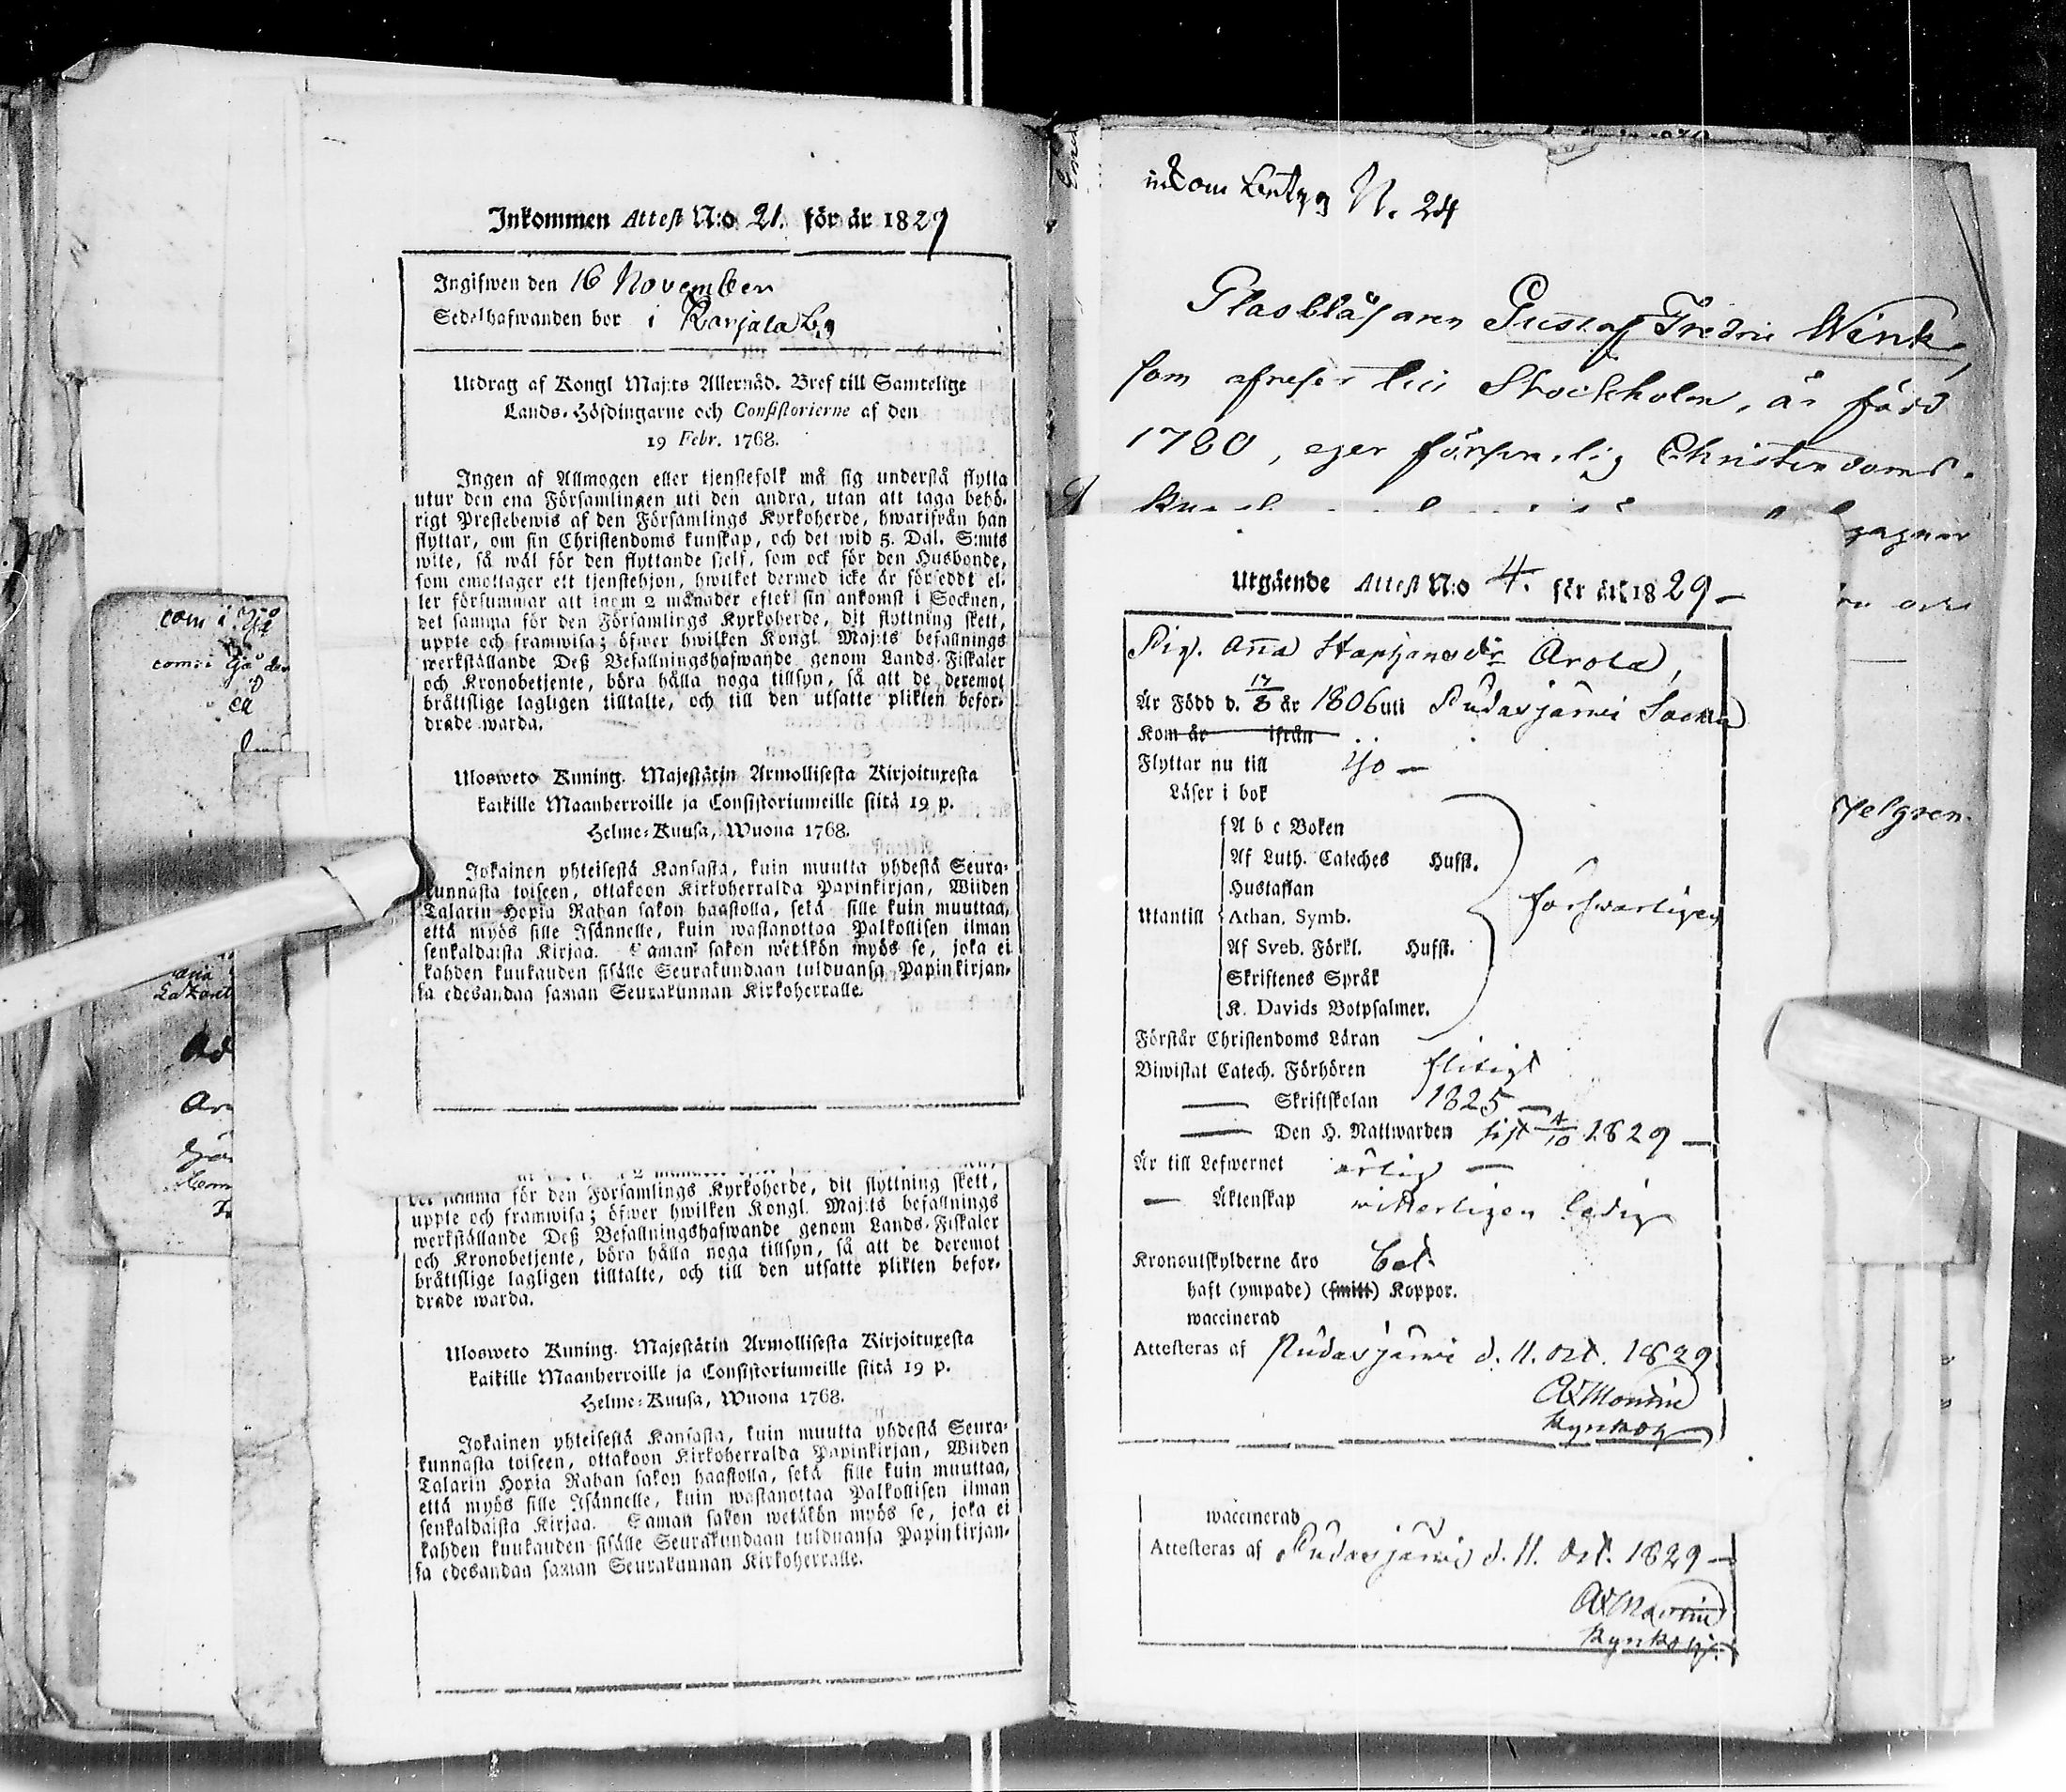 Inkommen Attest N:o 21. för år 1829
Ingifwen den 16 November
Sedelhafwanden bor i Karjala by
Utdrag af Kongl Maj:ts Allernåd. Bref till Samtelige
Lands-Höfdingarne och Consistorierne af den
19 Febr. 1768.
Ingen af Allmogen eller tjenstefolk må sig understå flytta
utur den ena Församlingen uti den andra, utan att taga behö-
rigt Prestebewis af den Församlings Kyrkoherde, hwarifrån han
flyttar, om sin Christendoms kunskap, och det wid 5. Dal. S:mts
wite, så wäl för den flyttande sjelf, som ock för den Husbonde,
som emottager ett tjenstehjon, hwilket dermed icke är försedt el-
ler försummar att inom 2 månader efter sin ankomst i Socknen,
det samma för den Församlings Kyrkoherde, dit flyttning skett,
uppte och framwisa; öfwer hwilken Kongl. Maj:ts befallnings
werkställande Deß Befallningshafwande genom Lands-Fiskaler
och Kronobetjente, böra hålla noga tillsyn, så att de deremot
bråttslige lagligen tilltalte, och till den utsatte plikten befor-
drade warda.
Ulosweto Kuning. Majestätin Armollisesta Kirjoituxesta
kaikille Maanherroille ja Consistoriumeille siitä 19 p.
Helme-Kuusa, Wuona 1768.
Jokainen yhteisestä Kansasta, kuin muutta yhdestä Seura-
kunnasta toiseen, ottakoon Kirkoherralda Papinkirjan, Wiiden
Talarin Hopia Rahan sakon haastolla, sekä sille kuin muuttaa,
että myös sille Isännelle, kuin wastanottaa Palkollisen ilman
senkaldaista Kirjaa. Saman sakon wetäkön myös se, joka ei
kahden kuukauden sisälle Seurakundaan tulduansa Papinkirjan-
sa edesandaa saman Seurakunnan Kirkoherralle.
det samma för den Församlings Kyrkoherde, dit flyttning skett,
uppte och framwisa; öfwer hwilken Kongl. Maj:ts befallnings
werkställande Deß Befallningshafwande genom Lands-Fiskaler
och Kronobetjente, böra hålla noga tillsyn, så att de deremot
bråttslige lagligen tilltalte, och till den utsatte plikten befor-
drade warda.
Ulosweto Kuning. Majestätin Armollisesta Kirjoituxesta
kaikille Maanherroille ja Consistoriumeille siitä 19 p.
Helme-Kuusa, Wuona 1768.
Jokainen yhteisestä Kansasta, kuin muutta yhdestä Seura-
kunnasta toiseen, ottakoon Kirkoherralda Papinkirjan, Wiiden
Talarin Hopia Rahan sakon haastolla, sekä sille kuin muuttaa,
että myös sille Isännelle, kuin wastanottaa Palkollisen ilman
senkaldaista Kirjaa. Saman sakon wetäkön myös se, joka ei
kahden kuukauden sisälle Seurakundaan tulduansa Papinkirjan-
sa edesandaa saman Seurakunnan Kirkoherralle.
N. 24
Glasblåsaren Gustaf Fredric Wink,
som afreser till Stockholm, är född
1780, eger försvarlig Christendoms-
Utgående Attest N:o 4. för år 1829
Pig. Anna Staphansdr Arola,
Är Född d. 17/8 år 1806 uti Pudasjärwi Sockn
Kom år ifrån
Flyttar nu till Ijo
Läser i bok
A b c Boken
Af Luth. Cateches Hufst.
Hustaflan
Utantill Athan. Symb. försvarligen
Af Sveb. Förkl. Hufst.
Skriftenes Språk
K. Davids Botpsalmer.
Förstår Christendoms Läran
Biwistat Catech. Förhören flitigt
Skriftskolan 1825
Den H. Nattwarden sist 4/10 1829
Är till Lefwernet ärlig
Äktenskap witterligen ledig
Kronoutskylderne äro bet.
haft (ympade) (smitt) Koppor.
waccinerad
Attesteras af Pudasjärwi d. 11. Oct. 1829
waccinerad
Attesteras af Pudasjärwi d. 11. Oct. 1829